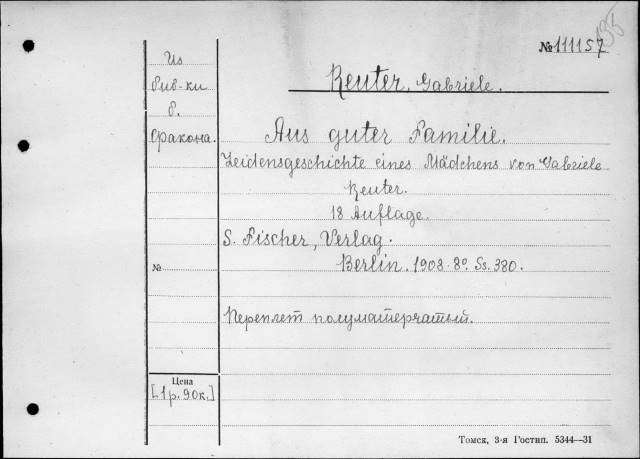 195
№ 111157
Из
биб-ки
б.
Фракона.
Reuter, Gabriele.
Aus guter Familie.
Leidensgeschichte eines Mädchens von Gabriele
Reuter.
18 Auflage.
S. Fischer, Verlag.
Berlin. 1908. 8º. Ss. 380.
№
Переплет полуматерчатый.
Цена
[1 р. 90к.]
Томск, 3-я Гостип. 5344—31